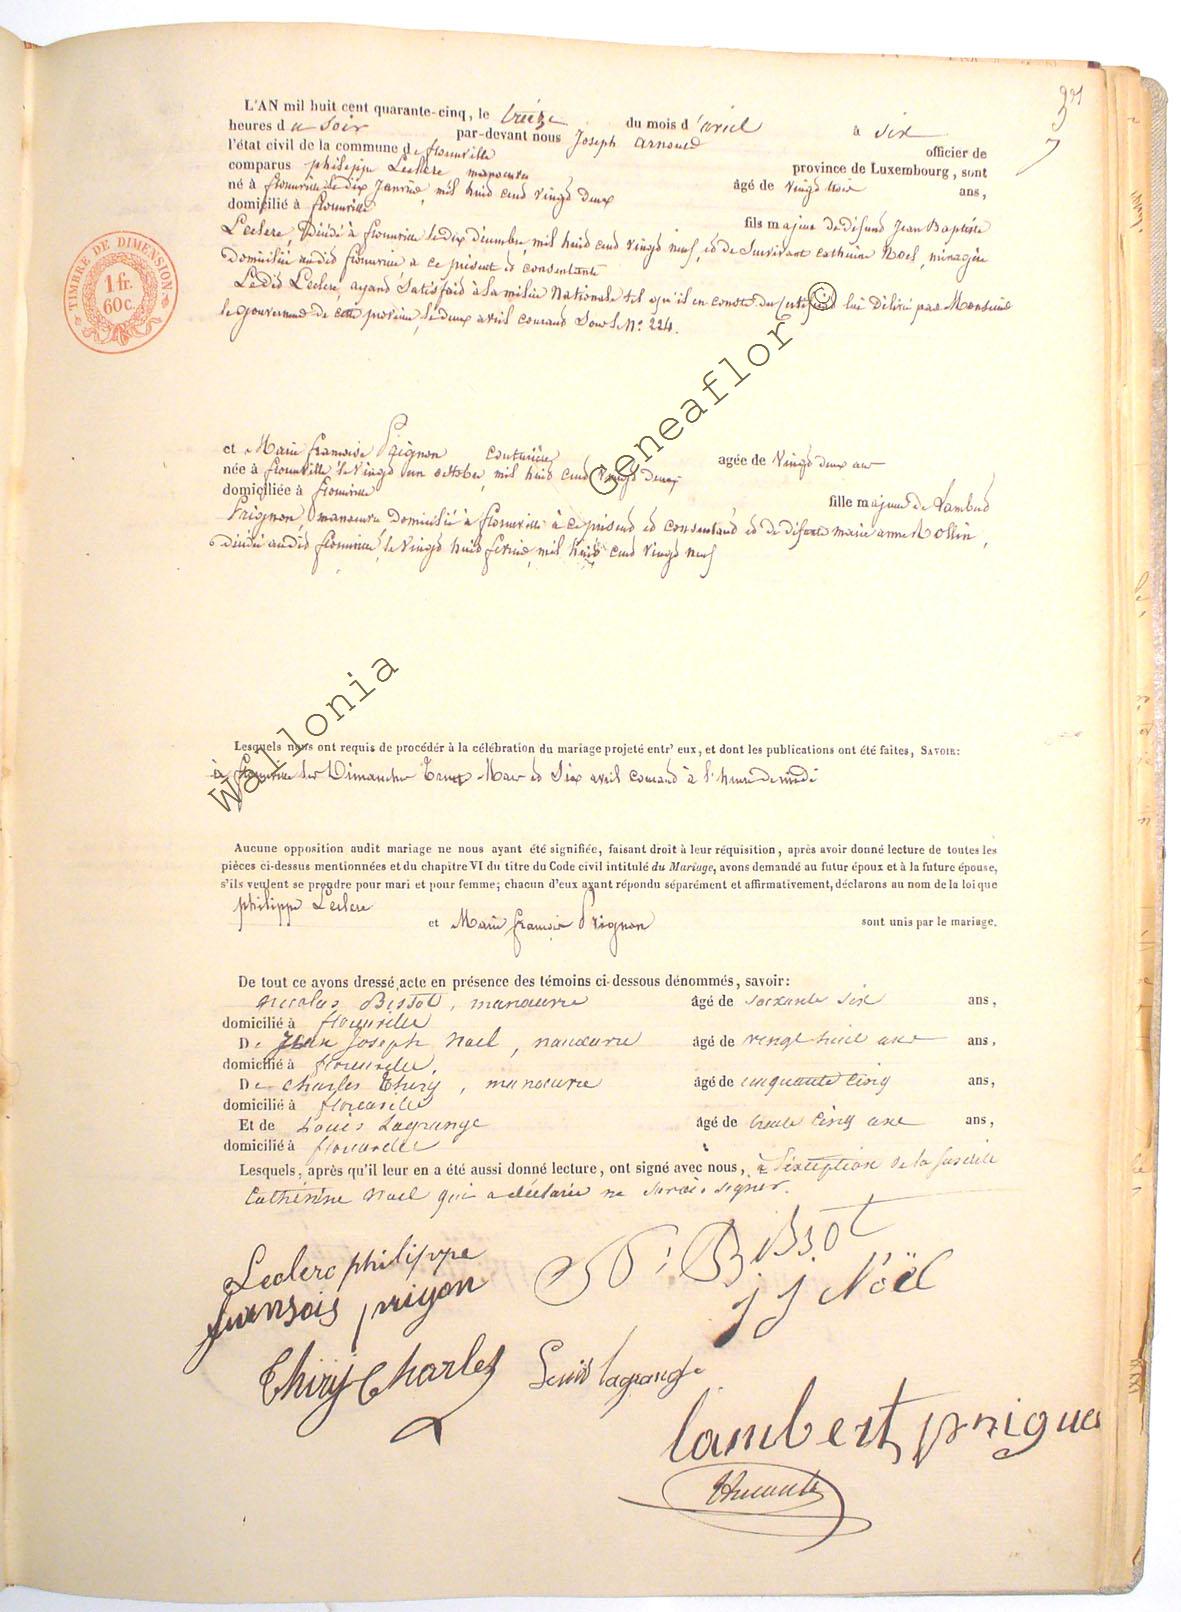 L'AN mil huit cent quarante-cinq, le treize du mois d'avril à six
heures du soir par-devant nous Joseph Arnould officier de
l'état civil de la commune de florenville province de Luxembourg, sont
comparus philippe Leclere manoeuvre âgé de vingt trois ans,
né à florenville le dix Janvier, mil huit cent vingt deux
domicilié à florenville fils majeur de défunt Jean Baptiste
Leclere, Décédé à florenville le dix décembre, mil huit cent vingt neuf, et de Survivant catherine Noel, ménagère
Domiciliée audit florenville a ce présent et consentante
Ledit Leclere, ayant Satisfait à la milice Nationale tel qu'il en conste du Certificat lui Délivré par Monsieur
le gouverneur de cette province, le deux avril courant Sous le No. 224.
et Marie françoise Prignon couturière agée de vingt deux ans
née à florenville le vingt un octobre, mil huit cent vingt deux
domiciliée à florenville fille majeure de Lambert
Prignon, manoeuvre Domicilié à florenville à ce présent et consentant et de défunte marie anne Rollin,
décédée audit florenville, le vingt huit février, mil huit cent vingt neuf
Lesquels nous ont requis de procéder à la célébration du mariage projeté entr' eux, et dont les publications ont été faites, SAVOIR:
à florenville les Dimanches Trente Mars et Six avril courant à l'heure de midi
Aucune opposition audit mariage ne nous ayant été signifiée, faisant droit à leur réquisition, après avoir donné lecture de toutes les
pièces ci-dessus mentionnées et du chapitre VI du titre du Code civil intitulé du Mariage, avons demandé au futur époux et à la future épouse,
s'ils veulent se prendre pour mari et pour femme; chacun d'eux ayant répondu séparément et affirmativement, déclarons au nom de la loi que
philippe Leclere
et Marie françoise Prignon sont unis par le mariage.
De tout ce avons dressé acte en présence des témoins ci-dessous dénommés, savoir:
Nicolas Bissot, manoeuvre âgé de soixante six ans,
domicilié à florenville
De Jean Joseph Noel, manoeuvre âgé de vingt huit ans ans,
domicilié à florenville,
De Charles Thiry, manoeuvre âgé de cinquante cinq ans,
domicilié à florenville
Et de Louis Lagrange âgé de trente cinq ans ans,
domicilié à florenville
Lesquels, après qu'il leur en a été aussi donné lecture, ont signé avec nous, à l'exception de la susdite
Catherine Noel qui a déclarée ne savoir signer.
Leclerc philippe
N: Bissot
fransois prignon
J J Noël
Thiry Charles
Louis lagrange
lambert prignon
TIMBRE DE DIMENSION
1 fr.
60c.
Wallonia Geneaflor ©